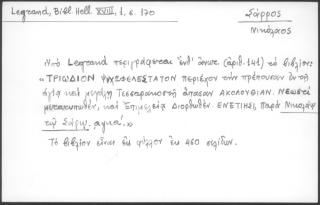 Legrand, Bibl. Hell. XVIII, 1, σ. 170
Σάρρος
Νικόλαος
Ὑπὸ Legrand περιγράφεται ἐπ' ἀνωτ. (ἀριθ. 141) τὸ βιβλίον:
« ΤΡΙΩΔΙΟΝ ΨΥΧΩΦΕΛΕΣΤΑΤΟΝ περιέχον τὴν πρέπουσαν ἐν τῇ
ἁγίᾳ καὶ μεγάλῃ Τεσσαρακοστῇ ἅπασαν ΑΚΟΛΟΥΘΙΑΝ. Νεωστὶ
μετατυπωθέν, καὶ Ἐπιμελείᾳ Διορθωθέν. ΕΝΕΤΙΗΣΙ, Παρὰ Νικολάῳ
τῷ Σάρῳ.
Τὸ βιβλίον εἶναι εἰς φύλλον ἐκ 460 σελίδων.